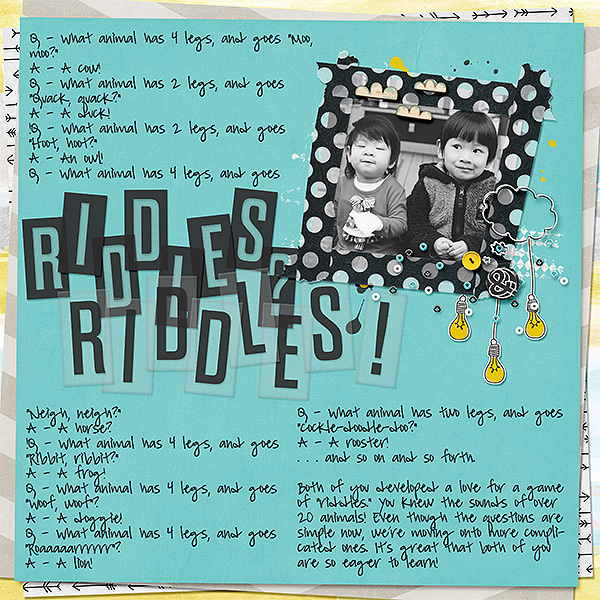 Q - what animal has 4 legs, and goes "Moo,
moo?"
A - A cow!
Q - what animal has 2 legs, and goes
"Quack, quack?"
A - A duck!
Q - what animal has 2 legs, and goes
"Hoot, hoot?"
A - An owl!
Q - what animal has 4 legs, and goes
RIDDLES,
RIDDLES!
"Neigh, neigh?"
A - A horse?
Q - what animal has 4 legs, and goes
"Ribbit, ribbit?"
A - A frog!
Q - what animal has 4 legs, and goes
"Woof, woof"?
A - A doggie!
Q - what animal has 4 legs, and goes
"Roaaaarrrrrr"?
A - A lion!
Q - what animal has two legs, and goes
"Cockle-doodle-doo?"
A - A rooster!
. . . and so on and so forth.
Both of you developed a love for a game
of "riddles." You knew the sounds of over
20 animals! Even though the questions are
simple now, we're moving onto more compli-
cated ones. It's great that both of you
are so eager to learn!